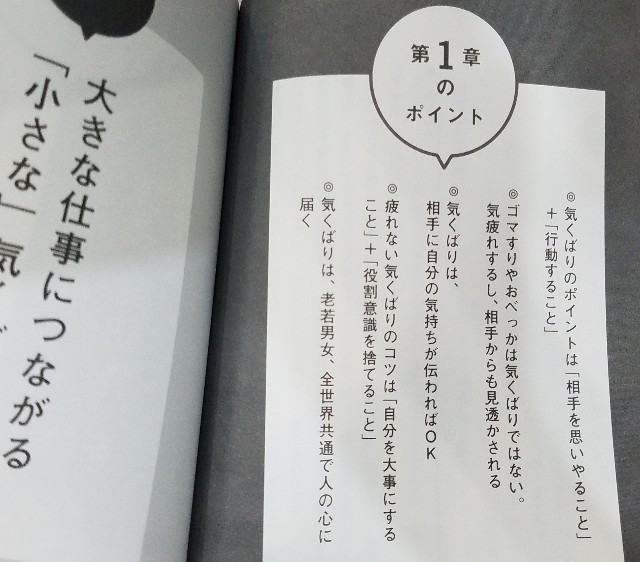 第1章
の
ポイント
◎気くばりのポイントは「相手を思いやること」
＋「行動すること」
◎ゴマすりやおべっかは気くばりではない。
気疲れするし、相手からも見透かされる
◎気くばりは、
相手に自分の気持ちが伝わればOK
◎疲れない気くばりのコツは「自分を大事にする
こと」＋「役割意識を捨てること」
◎気くばりは、老若男女、全世界共通で人の心に
届く
大きな仕事につながる
「小さな」気